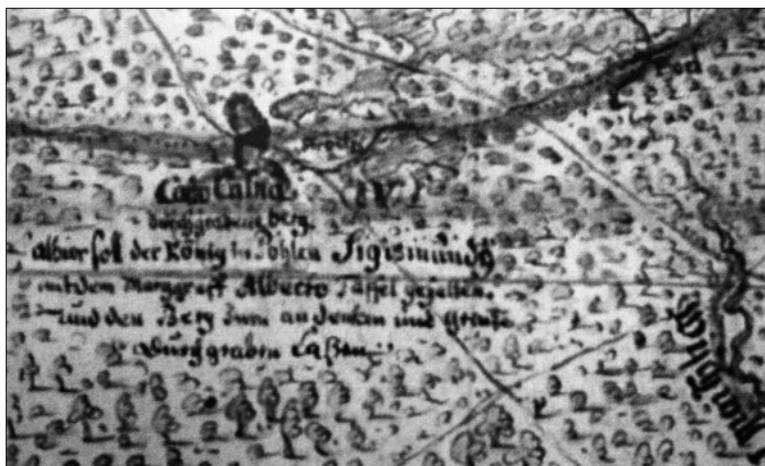 durchgrabener berg.
alhier soll der König in Pohlen Sigismundus
mit dem Marggraff Alberto Taffel gehalten,
und den Berg zum andencken und Grentze
durchgraben Laßen